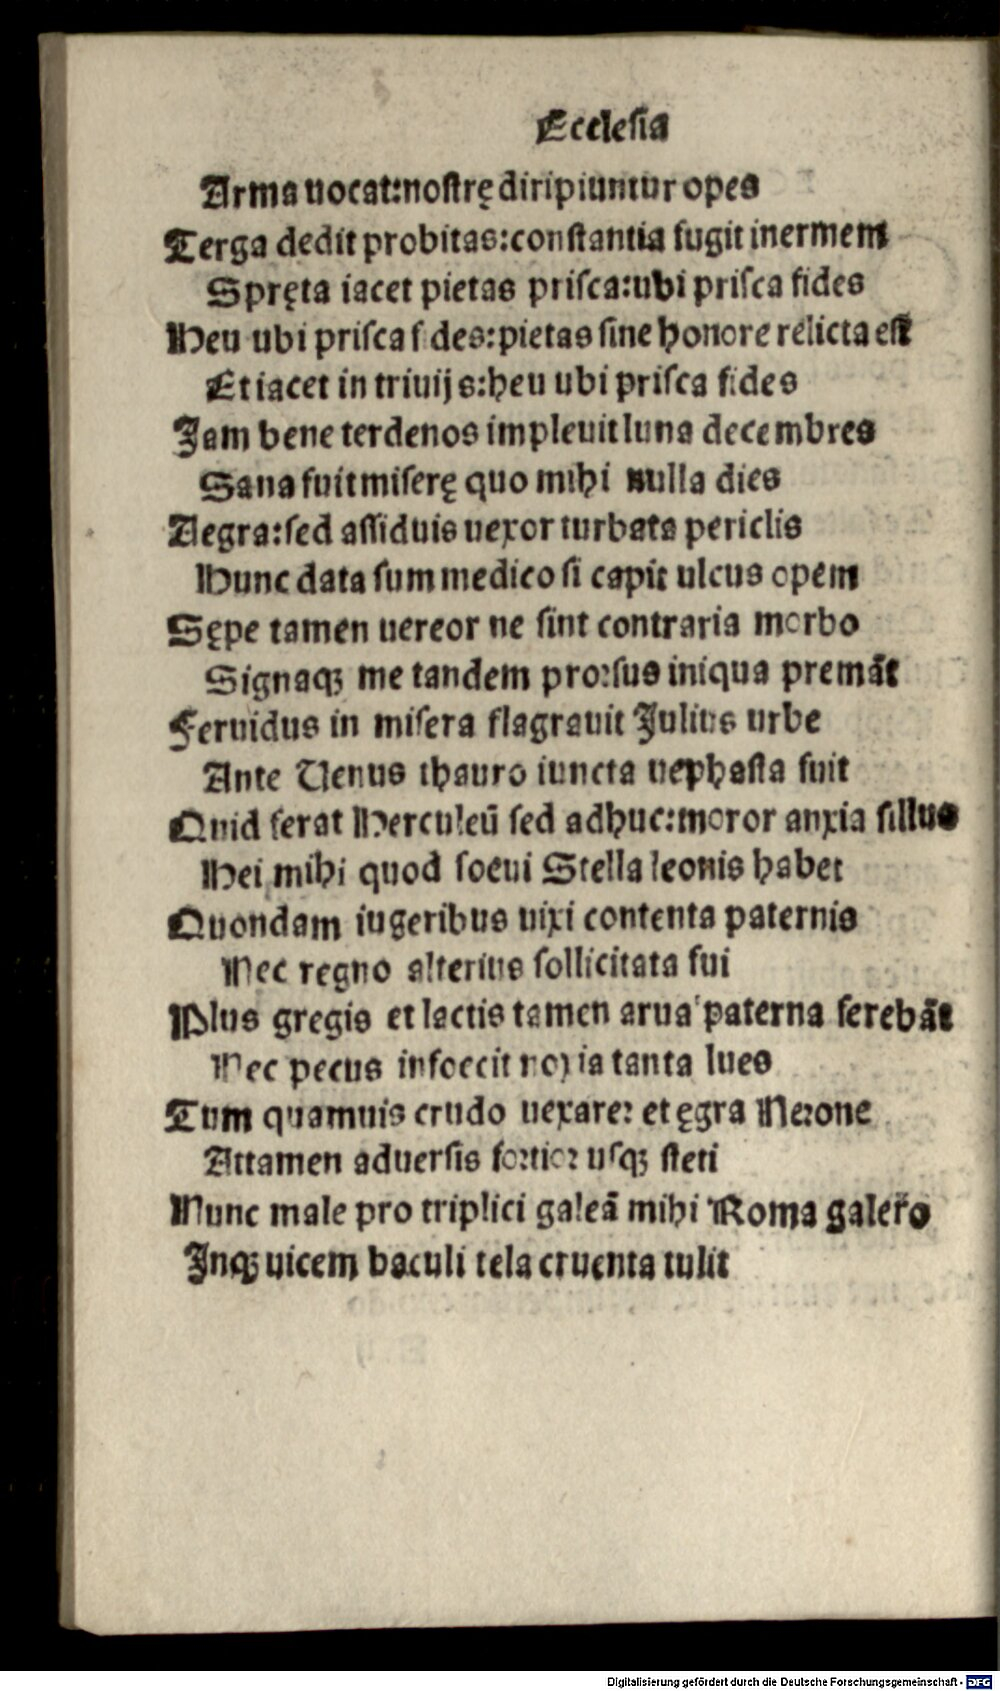 Ecclesia
Arma uocat:nostrę diripiuntur opes
Terga dedit probitas:constantia fugit inermem
Spręta iacet pietas prisca:ubi prisca fides
Heu ubi prisca fides:pietas sine honore relicta est
Et iacet in triuijs:heu ubi prisca fides
Jam bene terdenos impleuit luna decembres
Sana fuit miserę quo mihi nulla dies
Aegra:sed assiduis uexor turbata periclis
Nunc data sum medico si capit ulcus opem
Sępe tamen uereor ne sint contraria morbo
Signaqꝫ me tandem prorsus iniqua premāt
Feruidus in misera flagrauit Julius urbe
Ante Uenus thauro iuncta nephasta fuit
Quid ferat Herculeū sed adhuc:moror anxia sillus
Hei mihi quod soeui Stella leonis habet
Quondam iugeribus uixi contenta paternis
Nec regno alterius sollicitata fui
Plus gregis et lactis tamen arua paterna ferebāt
Nec pecus infoecit noxia tanta lues
Tum quamuis crudo uexarer et ęgra Nerone
Attamen aduersis fortior usqꝫ steti
Nunc male pro triplici galeā mihi Roma galero
Jnqꝫ uicem baculi tela cruenta tulit
Digitalisierung gefördert durch die Deutsche Forschungsgemeinschaft - DFG